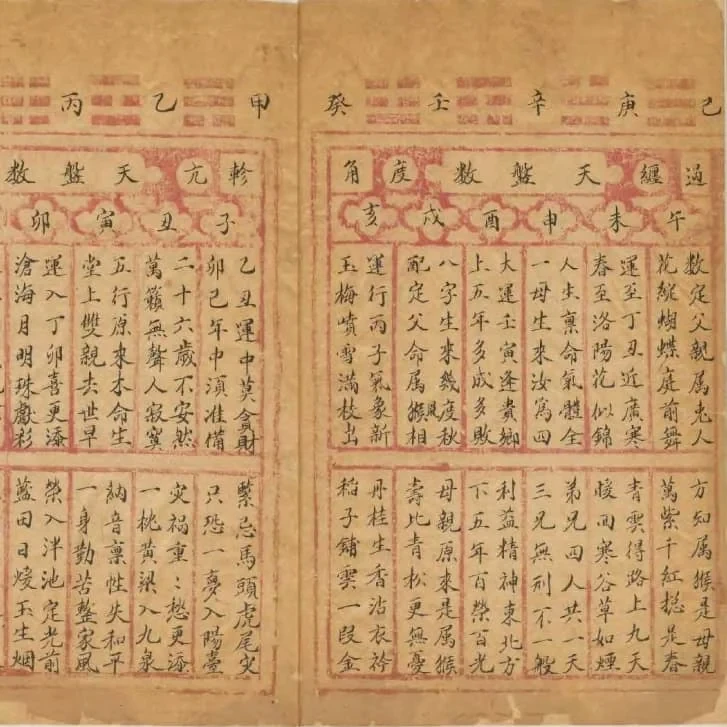 己庚辛壬癸
過纏天盤数度角
午未申酉戌亥
数定父親属人
花綻蝴蝶庭前舞
運至丁丑近廣寒
春至洛陽花似錦
人生禀命氣體全
一母生來汝寓四
大運壬寅逢貴鄉
上五年多成多敗
八字生來幾度秋
風
配定父命属猴相
運行丙子氣象新
玉梅噴雪滿枝出
方知属猴是母親
萬紫千紅摠是春
青雲得路上九天
暖回寒谷草如煙
弟兄四人共一天
三兄無刑不一般
利益精神東北方
下五年百榮百光
母親原來是属猴
壽比青松更無憂
丹桂生香沾衣衿
稻子鋪雲一段金
甲乙丙
軫亢天盤数
子丑寅卯
乙丑運中莫貪財
卯巳年中須准備
二十六歲不安然
萬籟無聲人寂寞
五行原來木命生
堂上雙親去世早
運入丁卯喜更添
滄海月明珠獻彩
緊忌馬頭虎尾災
只恐一夢入陽臺
灾禍重〻愁更添
一桃黃梁入九泉
納音禀性失和平
一身勤苦整家風
榮入泮池定光前
藍田日煖玉生烟